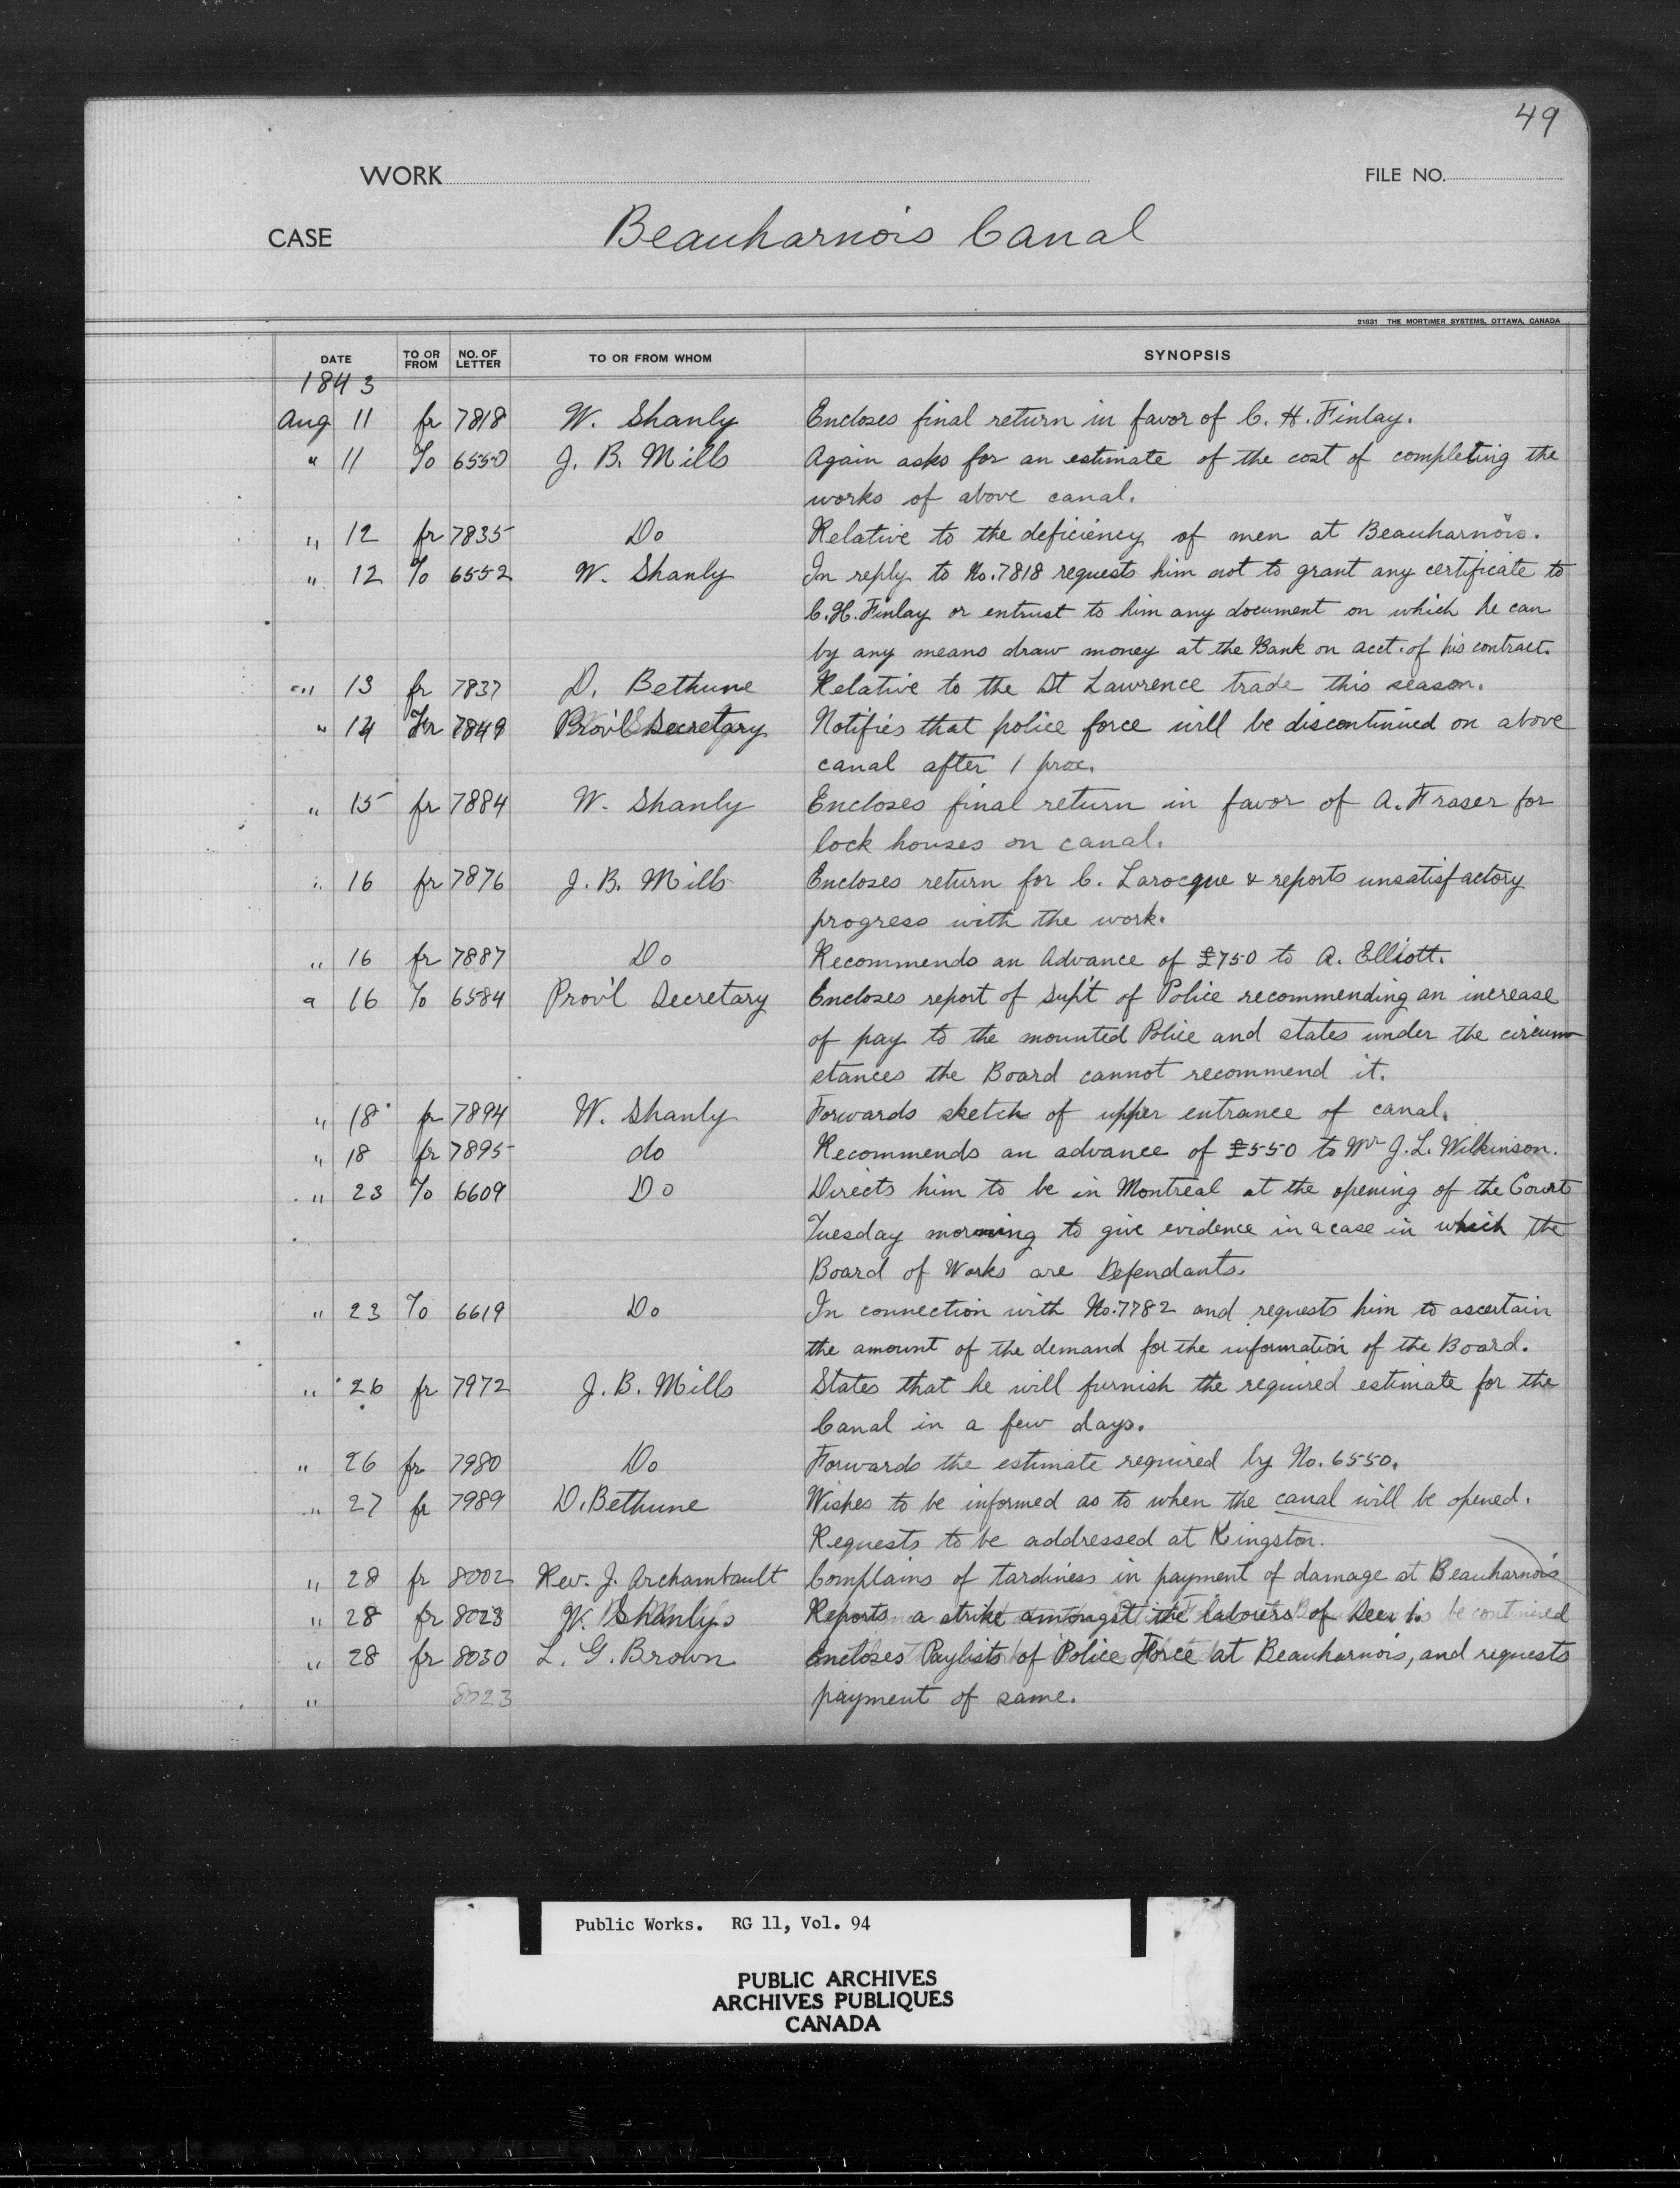 49
WORK
FILE NO.
CASE Beauharnois Canal
21831 THE MORTIMER SYSTEMS, OTTAWA, CANADA
DATE TO OR FROM NO. OF LETTER TO OR FROM WHOM SYNOPSIS
1843
Aug 11 fr 7818 W. Shanly Encloses final return in favor of C. H. Finlay.
" 11 To 6550 J. B. Mills Again asks for an estimate of the cost of completing the
works of above canal.
" 12 fr 7835 Do Relative to the deficiency of men at Beauharnois.
" 12 To 6552 W. Shanly In reply to No. 7818 requests him not to grant any certificate to
C. H. Finlay or entrust to him any document on which he can
by any means draw money at the Bank on acct. of his contract.
" 13 fr 7837 D. Bethune Relative to the St Lawrence trade this season.
" 14 Fr 7849 Prov'l Secretary Notifies that police force will be discontinued on above
canal after 1 prox.
" 15 fr 7884 W. Shanly Encloses final return in favor of A. Fraser for
lock houses on canal.
" 16 fr 7876 J. B. Mills Encloses return for C. Larocque & reports unsatisfactory
progress with the work.
" 16 fr 7887 Do Recommends an Advance of £750 to A. Elliott.
" 16 To 6584 Prov'l Secretary Encloses report of Sup't of Police recommending an increase
of pay to the mounted Police and states under the circum
stances the Board cannot recommend it.
" 18 fr 7894 W. Shanly Forwards sketch of upper entrance of canal.
" 18 fr 7895 do Recommends an advance of £550 to Mr J. L. Wilkinson.
" 23 To 6609 Do Directs him to be in Montreal at the opening of the Court
Tuesday morning to give evidence in a case in which the
Board of Works are Defendants.
" 23 To 6619 Do In connection with No. 7782 and requests him to ascertain
the amount of the demand for the information of the Board.
" 26 fr 7972 J. B. Mills States that he will furnish the required estimate for the
Canal in a few days.
" 26 fr 7980 Do Forwards the estimate required by No. 6550.
" 27 fr 7989 D. Bethune Wishes to be informed as to when the canal will be opened.
Requests to be addressed at Kingston.
" 28 fr 8002 Rev. J. Archambault Complains of tardiness in payment of damage at Beauharnois
" 28 fr 8023 W. Shanly Reports a strike amongst the laborers of Sec. 1. be continued
" 28 fr 8030 L. G. Brown Encloses Paylists of Police Force at Beauharnois, and requests
" 8023 payment of same.
Public Works. RG 11, Vol. 94
PUBLIC ARCHIVES
ARCHIVES PUBLIQUES
CANADA